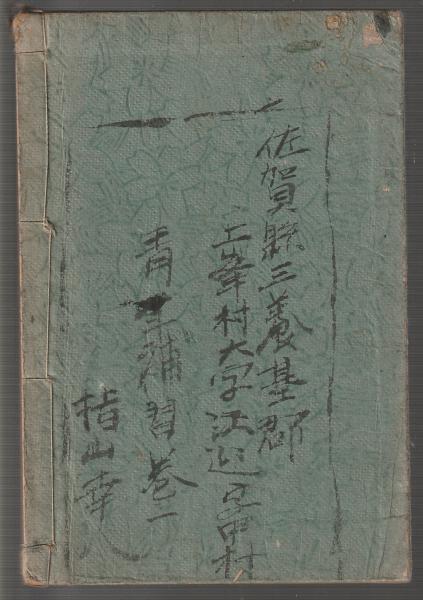 佐賀縣三養基郡
上峯村大字江迎字中村
青年補習巻一
指山幸